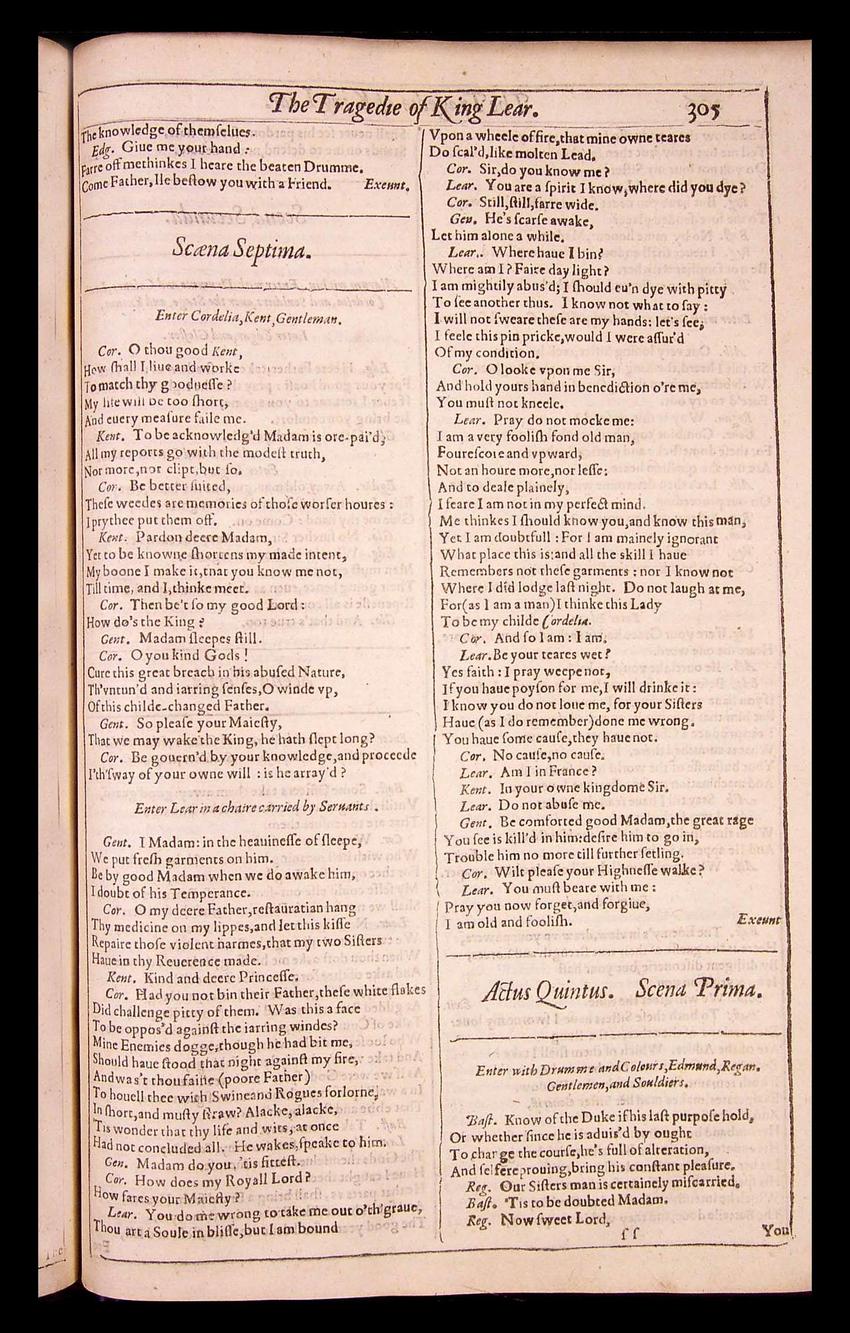 The Tragedie of King Lear. 305
The knowledge of themſelues.
Edg. Giue me your hand :
Farre off methinkes I heare the beaten Drumme.
Come Father, Ile beſtow you with a Friend. Exeunt.
Scæna Septima.
Enter Cordelia, Kent, Gentleman.
Cor. O thou good Kent,
How ſhall I liue and worke
To match thy goodneſſe ?
My life will be too ſhort,
And euery meaſure faile me.
Kent. To be acknowledg'd Madam is ore-pai'd,
All my reports go with the modeſt truth,
Nor more, nor clipt, but ſo.
Cor. Be better ſuited,
Theſe weedes are memories of thoſe worſer houres :
I prythee put them off.
Kent. Pardon deere Madam,
Yet to be knowne ſhortens my made intent,
My boone I make it, that you know me not,
Till time, and I, thinke meet.
Cor. Then be't ſo my good Lord :
How do's the King ?
Gent. Madam ſleepes ſtill.
Cor. O you kind Gods !
Cure this great breach in his abuſed Nature,
Th'vntun'd and iarring ſenſes, O winde vp,
Of this childe-changed Father.
Gent. So pleaſe your Maieſty,
That we may wake the King, he hath ſlept long?
Cor. Be gouern'd by your knowledge, and proceede
I'th'ſway of your owne will : is he array'd ?
Enter Lear in a chaire carried by Seruants .
Gent. I Madam: in the heauineſſe of ſleepe,
We put freſh garments on him.
Be by good Madam when we do awake him,
I doubt of his Temperance.
Cor. O my deere Father, reſtauratian hang
Thy medicine on my lippes, and let this kiſſe
Repaire thoſe violent harmes, that my two Siſters
Haue in thy Reuerence made.
Kent. Kind and deere Princeſſe.
Cor. Had you not bin their Father, theſe white flakes
Did challenge pitty of them. Was this a face
To be oppos'd againſt the iarring windes?
Mine Enemies dogge, though he had bit me,
Should haue ſtood that night againſt my fire,
And was't thou faine (poore Father)
To houell thee with Swine and Rogues forlorne,
In ſhort, and muſty ſtraw? Alacke, alacke,
'Tis wonder that thy life and wits, at once
Had not concluded all. He wakes, ſpeake to him.
Gen. Madam do you, 'tis fitteſt.
Cor. How does my Royall Lord ?
How fares your Maieſty ?
Lear. You do me wrong to take me out o'th'graue,
Thou art a Soule in bliſſe, but I am bound
Vpon a wheele of fire, that mine owne teares
Do ſcal'd, like molten Lead.
Cor. Sir, do you know me ?
Lear. You are a ſpirit I know, where did you dye ?
Cor. Still, ſtill, farre wide.
Gen. He's ſcarſe awake,
Let him alone a while.
Lear. Where haue I bin?
Where am I ? Faire day light ?
I am mightily abus'd; I ſhould eu'n dye with pitty
To ſee another thus. I know not what to ſay :
I will not ſweare theſe are my hands: let's ſee,
I feele this pin pricke, would I were aſſur'd
Of my condition.
Cor. O looke vpon me Sir,
And hold yours hand in benediction o're me,
You muſt not kneele.
Lear. Pray do not mocke me:
I am a very fooliſh fond old man,
Foureſcore and vpward,
Not an houre more, nor leſſe:
And to deale plainely,
I feare I am not in my perfect mind.
Me thinkes I ſhould know you, and know this man,
Yet I am doubtfull : For I am mainely ignorant
What place this is: and all the skill I haue
Remembers not theſe garments : nor I know not
Where I did lodge laſt night. Do not laugh at me,
For (as I am a man) I thinke this Lady
To be my childe Cordelia.
Cor. And ſo I am : I am.
Lear. Be your teares wet ?
Yes faith : I pray weepe not,
If you haue poyſon for me, I will drinke it :
I know you do not loue me, for your Siſters
Haue (as I do remember) done me wrong.
You haue ſome cauſe, they haue not.
Cor. No cauſe, no cauſe.
Lear. Am I in France ?
Kent. In your owne kingdome Sir.
Lear. Do not abuſe me.
Gent. Be comforted good Madam, the great rage
You ſee is kill'd in him: deſire him to go in,
Trouble him no more till further ſetling.
Cor. Wilt pleaſe your Highneſſe walke ?
Lear. You muſt beare with me :
Pray you now forget, and forgiue,
I am old and fooliſh. Exeunt
Actus Quintus. Scena Prima.
Enter with Drumme and Colours, Edmund, Regan.
Gentlemen, and Souldiers.
Baſt. Know of the Duke if his laſt purpoſe hold,
Or whether ſince he is aduis'd by ought
To change the courſe, he's full of alteration,
And ſelfereprouing, bring his conſtant pleaſure.
Reg. Our Siſters man is certainely miſcarried.
Baſt. 'Tis to be doubted Madam.
Reg. Now ſweet Lord,
ſſ You